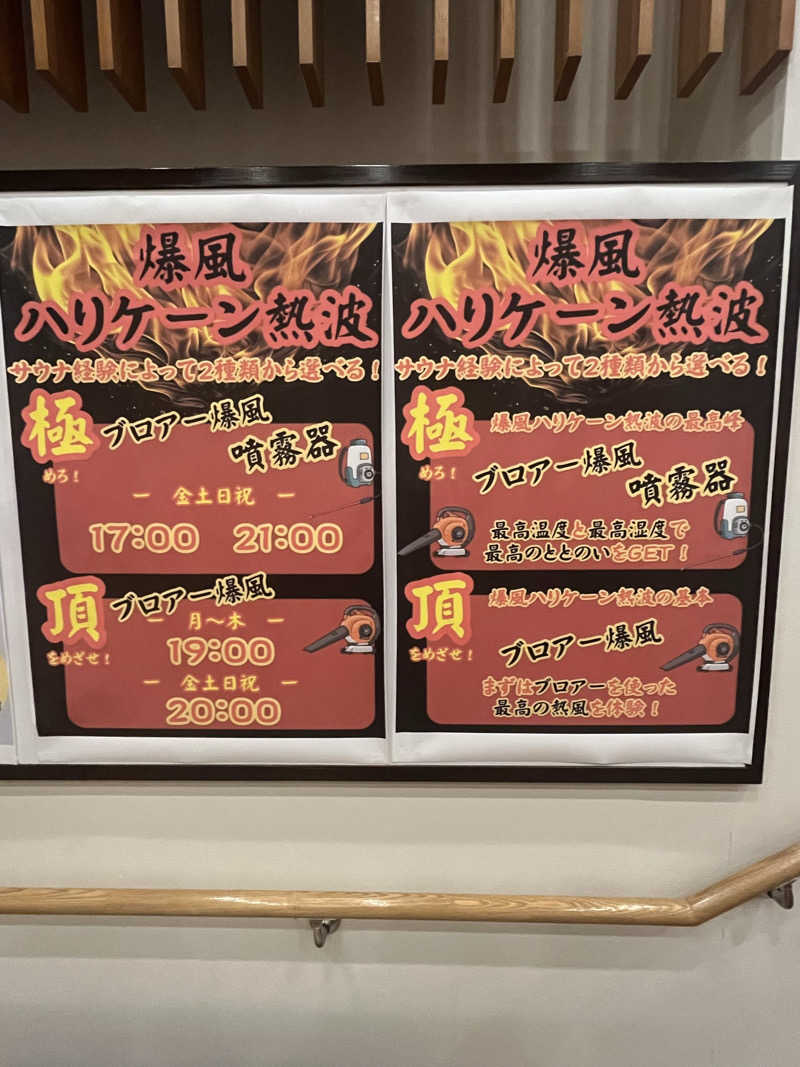 爆風
ハリケーン熱波
サウナ経験によって2種類から選べる！
極
めろ！
ブロアー爆風
噴霧器
ー 金土日祝 ー
17:00 21:00
頂
をめざせ！
ブロアー爆風
ー 月〜木 ー
19:00
ー 金土日祝 ー
20:00
爆風
ハリケーン熱波
サウナ経験によって2種類から選べる！
極
めろ！
爆風ハリケーン熱波の最高峰
ブロアー爆風
噴霧器
最高温度と最高湿度で
最高のととのいをGET！
頂
をめざせ！
爆風ハリケーン熱波の基本
ブロアー爆風
まずはブロアーを使った
最高の熱風を体験！